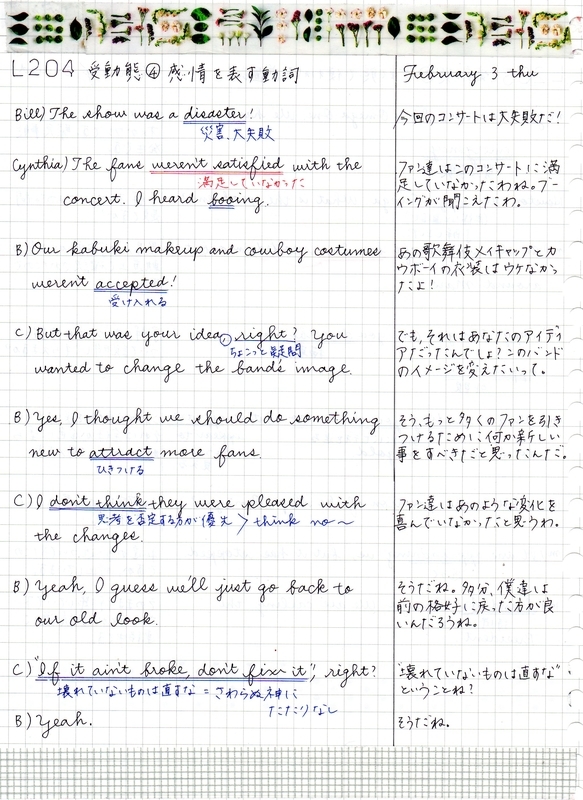 L204 受動態④ 感情を表す動詞
February 3 thu
Bill) The show was a disaster!
災害、大失敗
今回のコンサートは大失敗だ!
Cynthia) The fans weren't satisfied with the
満足していなかった
concert. I heard booing.
ファン達はこのコンサートに満
足していなかったわね。ブー
イングが聞こえたわ。
B) Our kabuki makeup and cowboy costumes
weren't accepted!
受け入れる
あの歌舞伎メイキャップとカ
ウボーイの衣装はウケなかっ
たよ!
C) But that was your idea, right? You
ちょこっと疑問
wanted to change the band's image.
でも、それはあなたのアイディ
アだったんでしょ?このバンド
のイメージを変えたいって。
B) Yes, I thought we should do something
new to attract more fans.
ひきつける
そう、もっと多くのファンを引き
つけるために何か新しい
事をすべきだと思ったんだ。
C) I don't think they were pleased with
思考を否定する方が優先 > think no~
the changes.
ファン達はあのような変化を
喜んでいなかったと思うわ。
B) Yeah, I guess we'll just go back to
our old look.
そうだね。多分、僕達は
前の格好に戻った方が良
いんだろうね。
C) "If it ain't broke, don't fix it", right?
壊れていないものは直すな = さわらぬ神に
たたりなし
"壊れていないものは直すな"
ということね?
B) Yeah.
そうだね。